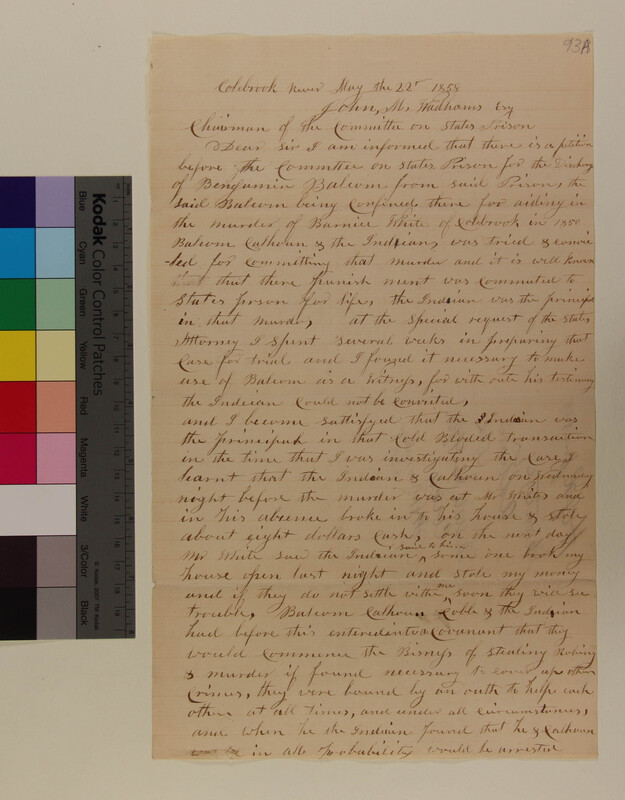 93A
Colebrook River May the 22d 1858
John, M, Wadhams Esq
Chairman of the Committee on States Prison
Dear Sir I am informed that there is a petition
before the Committee on States Prison for the Discharg
of Bengamin Balcom from said Prison, the
said Balcom being Confined there for aiding in
the murder of Barnice White of Colebrook in 1850
Balcom Calhoun & the Indian, was tried & convic
-ted for Committing that murder and it is well known
that there punish ment was commuted to
States prison for life, the Indian was the principal
in that murder, at the Special request of the States
Attorney I spent several weeks in preparing that
Case for trial and I found it necessary to make
use of Balcom as a witness, for with oute his testimony
the Indian Could not be Convicted,
and I become Sattisfyed that the Indian was
the principal in that Cold Bloded transaction
in the time that I was investigating the Case, I
learnt that the Indian & Calhoun on Wednesday
night before the murder was at Mr Whites and
in his absence broke in to his house & stole
about eight dollars Cash, on the next day
Mr White saw the Indian, said to him some one broke my
house open last night and stole my money
and if they do not settle with me soon they will see
trouble, Balcom Calhoun Coble & the Indian
had before this entered into a Covanant that they
would Commence the Bisness of Stealing Robing
& murder if found necessary to cover up other
Crimes, they were bound by an outh to help each
other at all times, and under all circumstances,
and when he the Indian found that he & Calhoun
in all probability would be arrested
Kodak Color Control Patches
Blue
Cyan
Green
Yellow
Red
Magenta
White
3/Color
Black